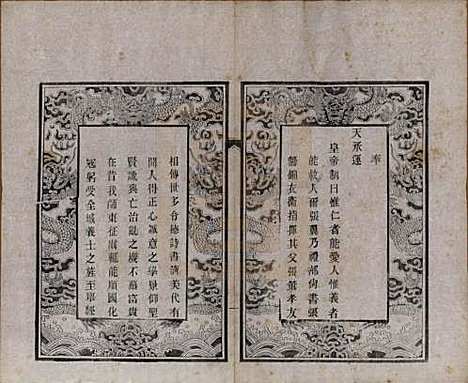 奉
天承運
皇帝制曰惟仁者能愛人惟義者
能救人爾張翼乃禮部尚書張
昝錦衣衛指揮其父張懋孝友
相傳世多合德詩書濟美代有
聞人得正心誠意之學景仰聖
賢識興亡治亂之機不慕富貴
在昔我師東征爾能順國化
冦躬受全城義士之旌至畢